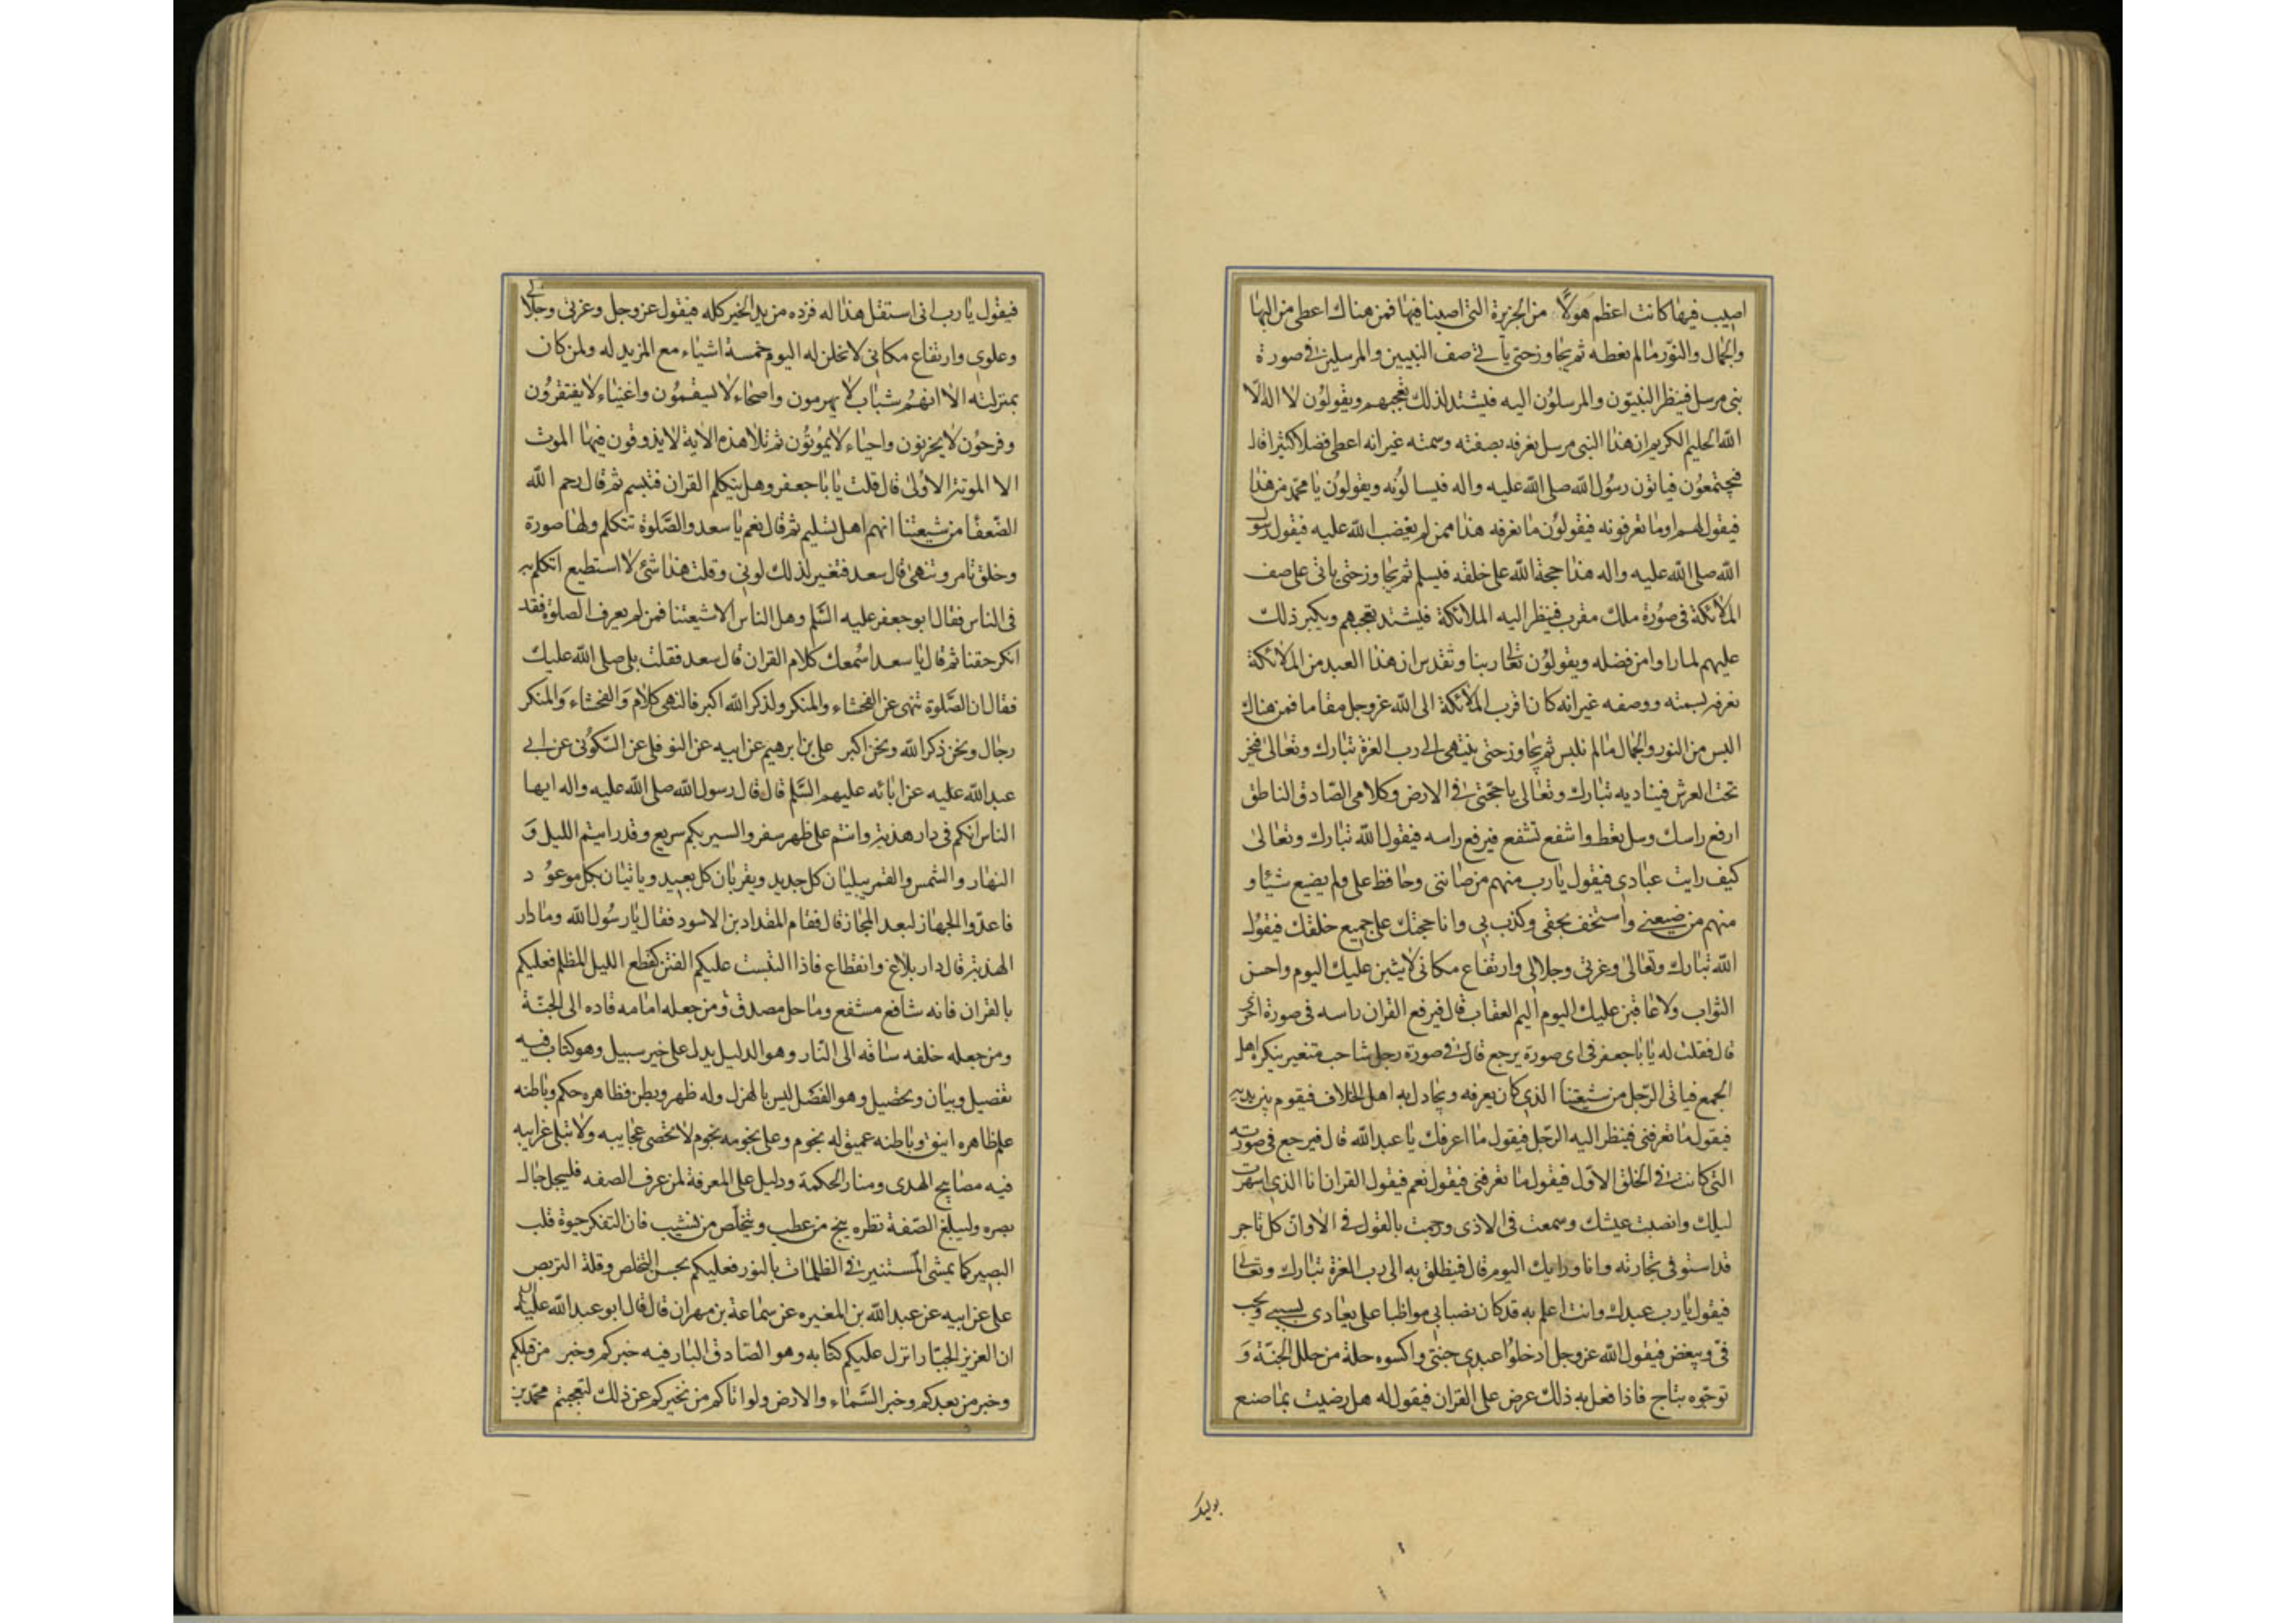 اصيب فيها كانت اعظم هولا من الجزيرة التى اصبنا فيها فمن هناك اعطى من البها
والجمال والنور مالم نعطه ثم يجاوز حتى ياتى صف النبيين والمرسلين فى صورة
نبى مرسل فينظر النبيون والمرسلون اليه فيشتد لذلك تعجبهم ويقولون لا اله الا
الله الحليم الكريم ان هذا النبى مرسل نعرفه بصفته وسمته غير انه اعطى فضلا كثيرا قال
فيجتمعون فياتون رسول الله صلى الله عليه واله فيسالونه ويقولون يا محمد من هذا
فيقول لهم اوما تعرفونه فيقولون ما نعرفه هذا ممن لم يغضب الله عليه فيقول رسول
الله صلى الله عليه واله هذا حجة الله على خلقه فيسلم ثم يجاوز حتى ياتى على صف
الملائكة فى صورة ملك مقرب فينظر اليه الملائكة فيشتد تعجبهم ويكبر ذلك
عليهم لما راوا من فضله ويقولون تعالى ربنا وتقدس ان هذا العبد من الملائكة
نعرفه بسمته ووصفه غير انه كان اقرب الملائكة الى الله عز وجل مقاما فمن هناك
البس من النور والجمال مالم نلبس ثم يجاوز حتى ينتهى الى رب العزة تبارك وتعالى فيخر
تحت العرش فيناديه تبارك وتعالى يا حجتى فى الارض وكلامى الصادق الناطق
ارفع راسك وسل تعط واشفع تشفع فيرفع راسه فيقول الله تبارك وتعالى
كيف رايت عبادى فيقول يا رب منهم من صاننى وحافظ على ولم يضيع شيئا و
منهم من ضيعنى واستخف بحقى وكذب بى وانا حجتك على جميع خلقك فيقول
الله تبارك وتعالى وعزتى وجلالى وارتفاع مكانى لاثيبن عليك اليوم واحسن
الثواب ولاعاقبن عليك اليوم اليم العقاب قال فيرفع القران راسه فى صورة اخرى
قال فقلت له يا باجعفر فى اى صورة يرجع قال فى صورة رجل شاحب متغير ينكره اهل
الجمع فياتى الرجل من شيعتنا الذى كان يعرفه ويجادل به اهل الخلاف فيقوم بين يديه
فيقول ما تعرفنى فينظر اليه الرجل فيقول ما اعرفك يا عبد الله قال فيرجع فى صورته
التى كانت فى الخلق الاول فيقول ما تعرفنى فيقول نعم فيقول القران انا الذى اسهرت
ليلك وانصبت عيشك وسمعت فى الاذى ورجمت بالقول فى الاوان كل تاجر
قد استوفى تجارته وانا وراءك اليوم قال فينطلق به الى رب العزة تبارك وتعالى
فيقول يا رب عبدك وانت اعلم به قد كان نصبا بى مواظبا على يعادى بسببى ويحب
فى ويبغض فيقول الله عز وجل ادخلوا عبدى جنتى واكسوه حلة من حلل الجنة و
توجوه بتاج فاذا فعل به ذلك عرض على القران فيقول له هل رضيت بما صنع
فيقول يا رب انى استقل هذا له فزده مزيد الخير كله فيقول عز وجل وعزتى وجلالى
وعلوى وارتفاع مكانى لانحلن له اليوم خمسة اشياء مع المزيد له ولمن كان
بمنزلته الا انهم شباب لا يهرمون واصحاء لا يسقمون واغنياء لا يفتقرون
وفرحون لا يحزنون واحياء لا يموتون ثم تلا هذه الاية لا يذوقون فيها الموت
الا الموتة الاولى قال قلت يا باجعفر وهل يتكلم القران فتبسم ثم قال رحم الله
الضعفا من شيعتنا انهم اهل تسليم ثم قال نعم يا سعد والصلوة تتكلم ولها صورة
وخلق تامر وتنهى قال سعد فتغير لذلك لونى وقلت هذا شئ لا استطيع اتكلم به
فى الناس فقال ابو جعفر عليه السلم وهل الناس الا شيعتنا فمن لم يعرف الصلوة فقد
انكر حقنا ثم قال يا سعد اسمعك كلام القران قال سعد فقلت بلى صلى الله عليك
فقال ان الصلوة تنهى عن الفحشاء والمنكر ولذكر الله اكبر فالنهى كلام والفحشاء والمنكر
رجال ونحن ذكر الله ونحن اكبر على بن ابرهيم عن ابيه عن النوفلى عن السكونى عن ابى
عبد الله عليه عن ابائه عليهم السلم قال قال رسول الله صلى الله عليه واله ايها
الناس انكم فى دار هدنة وانتم على ظهر سفر والسير بكم سريع وقد رايتم الليل و
النهار والشمس والقمر يبليان كل جديد ويقربان كل بعيد وياتيان بكل موعود
فاعدوا الجهاز لبعد المجاز قال فقام المقداد بن الاسود فقال يا رسول الله وما دار
الهدنة قال دار بلاغ وانقطاع فاذا التبست عليكم الفتن كقطع الليل المظلم فعليكم
بالقران فانه شافع مشفع وماحل مصدق ومن جعله امامه قاده الى الجنة
ومن جعله خلفه ساقه الى النار وهو الدليل يدل على خير سبيل وهو كتاب فيه
تفصيل وبيان وتحصيل وهو الفصل ليس بالهزل وله ظهر وبطن فظاهره حكم وباطنه
علم ظاهره انيق وباطنه عميق له نجوم وعلى نجومه نجوم لا تحصى عجايبه ولا تبلى غرايبه
فيه مصابيح الهدى ومنار الحكمة ودليل على المعرفة لمن عرف الصفه فليجل جال
بصره وليبلغ الصفة نظره ينج من عطب ويتخلص من نشب فان التفكر حيوة قلب
البصير كما يمشى المستنير فى الظلمات بالنور فعليكم بحسن التخلص وقلة التربص
على عن ابيه عن عبد الله بن المغيره عن سماعة بن مهران قال قال ابو عبد الله عليه السلم
ان العزيز الجبار انزل عليكم كتابه وهو الصادق البار فيه خبركم وخبر من قبلكم
وخبر من بعدكم وخبر السماء والارض ولو اتاكم من يخبركم عن ذلك لتعجبتم محمد بن